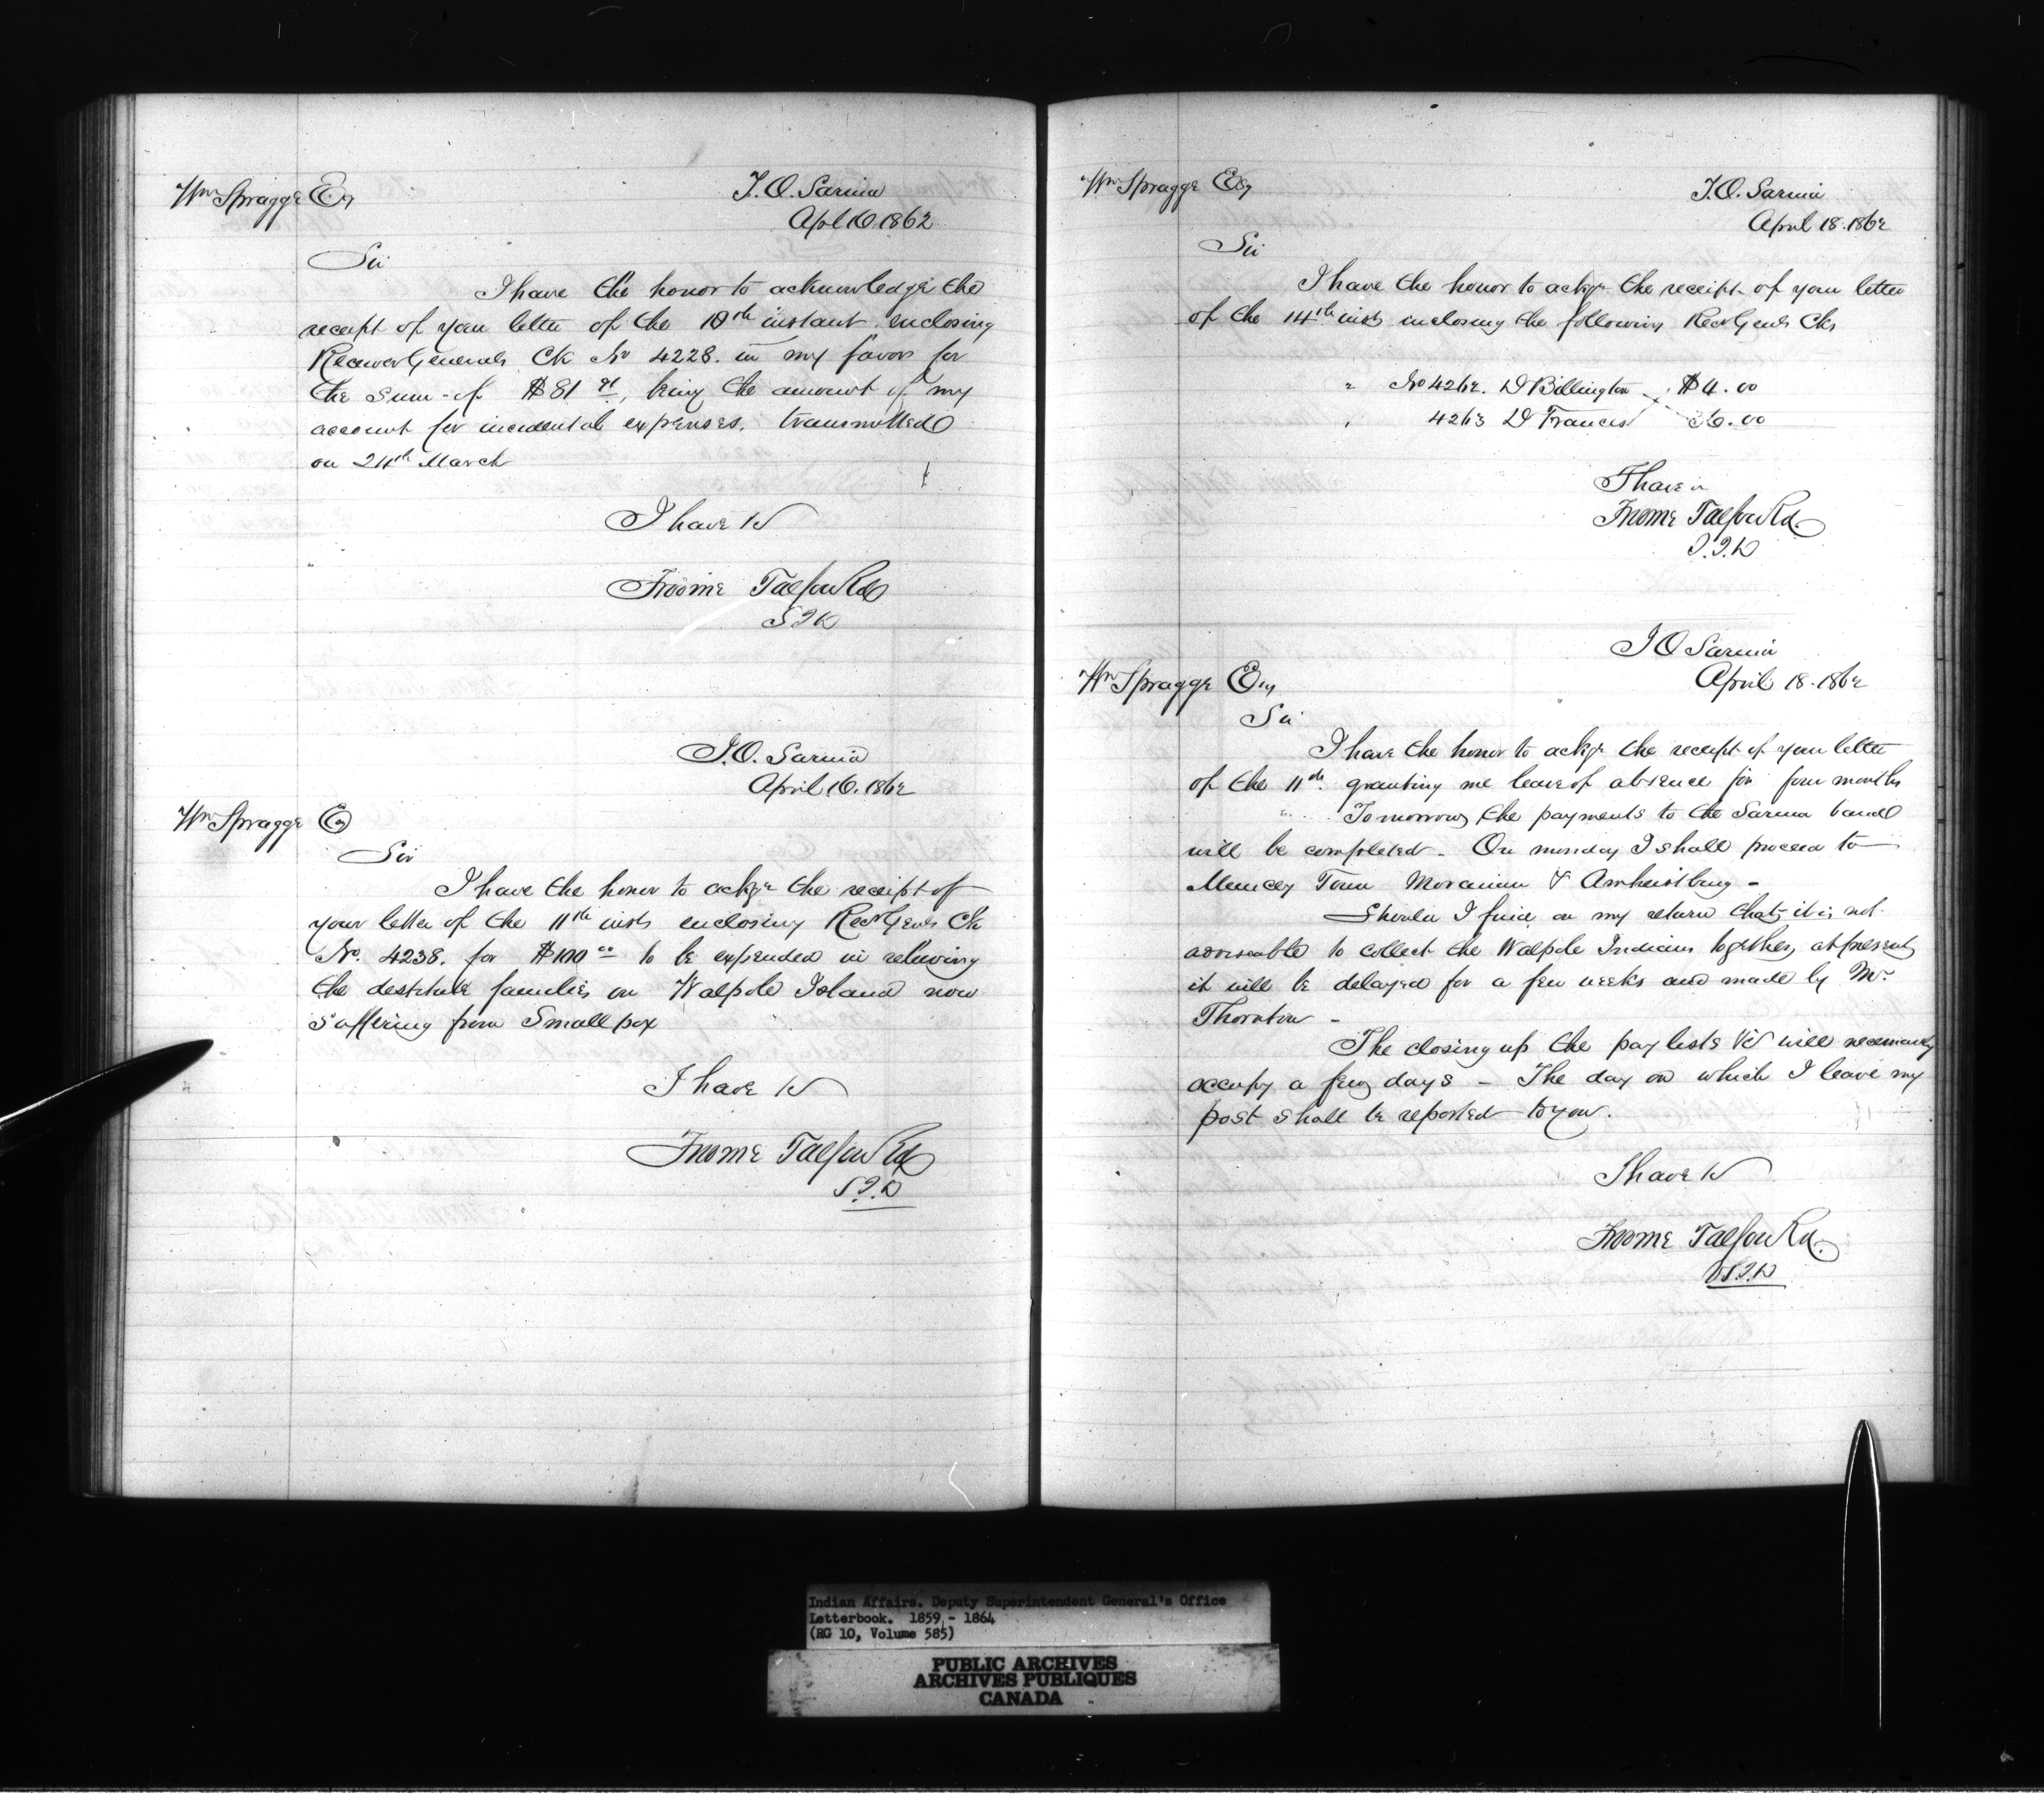 Wm Spragge Esq
I.O. Sarnia
Apl 16 1862
Sir
I have the honor to acknowledge the
receipt of your letter of the 10th instant enclosing
Receiver Generals Ck No 4228. in my favor for
the sum of $81 being the amount of my
account for incidental expenses. transmitted
on 24th March
I have &c
Froome Talfourd
S I A
I.O. Sarnia
April 16. 1862
Wm Spragge Esq
Sir
I have the honor to ackge the receipt of
your letter of the 11th inst enclosing RecrGenls Ck
No. 4238. for $100 00 to be expended in relieving
the destitute families on Walpole Island now
suffering from Small pox
I have &c
Froome Talfourd
S.I.A
Wm Spragge Esq
I.O. Sarnia
April 18. 1862
Sir
I have the honor to ackge the receipt of your letter
of the 14th inst inclosing the following RecrGenls Cks
" No 4262. D Billington $4.00
" 4263 D Francis 36.00
I have &c
Froome Talfourd.
S.I.A
I O Sarnia
April 18. 1862
Wm Spragge Esq
Sir
I have the honor to ackge the receipt of your letter
of the 11th. granting me leave of absence for four months
Tomorrow the payments to the Sarnia band
will be completed - On monday I shall proceed to
Muncey Town Moravian & Amherstburg -
Should I find on my return that it is not
adviseable to collect the Walpole Indians together, at present
it will be delayed for a few weeks and made by Mr.
Thornton -
The closing up the pay lists &c will necessarily
occupy a few days - The day on which I leave my
post shall be reported to you.
I have &c
Froome Talfourd.
S.I.A
Indian Affairs. Deputy Superintendent General's Office
Letterbook. 1859 - 1864
(RG 10, Volume 585)
PUBLIC ARCHIVES
ARCHIVES PUBLIQUES
CANADA